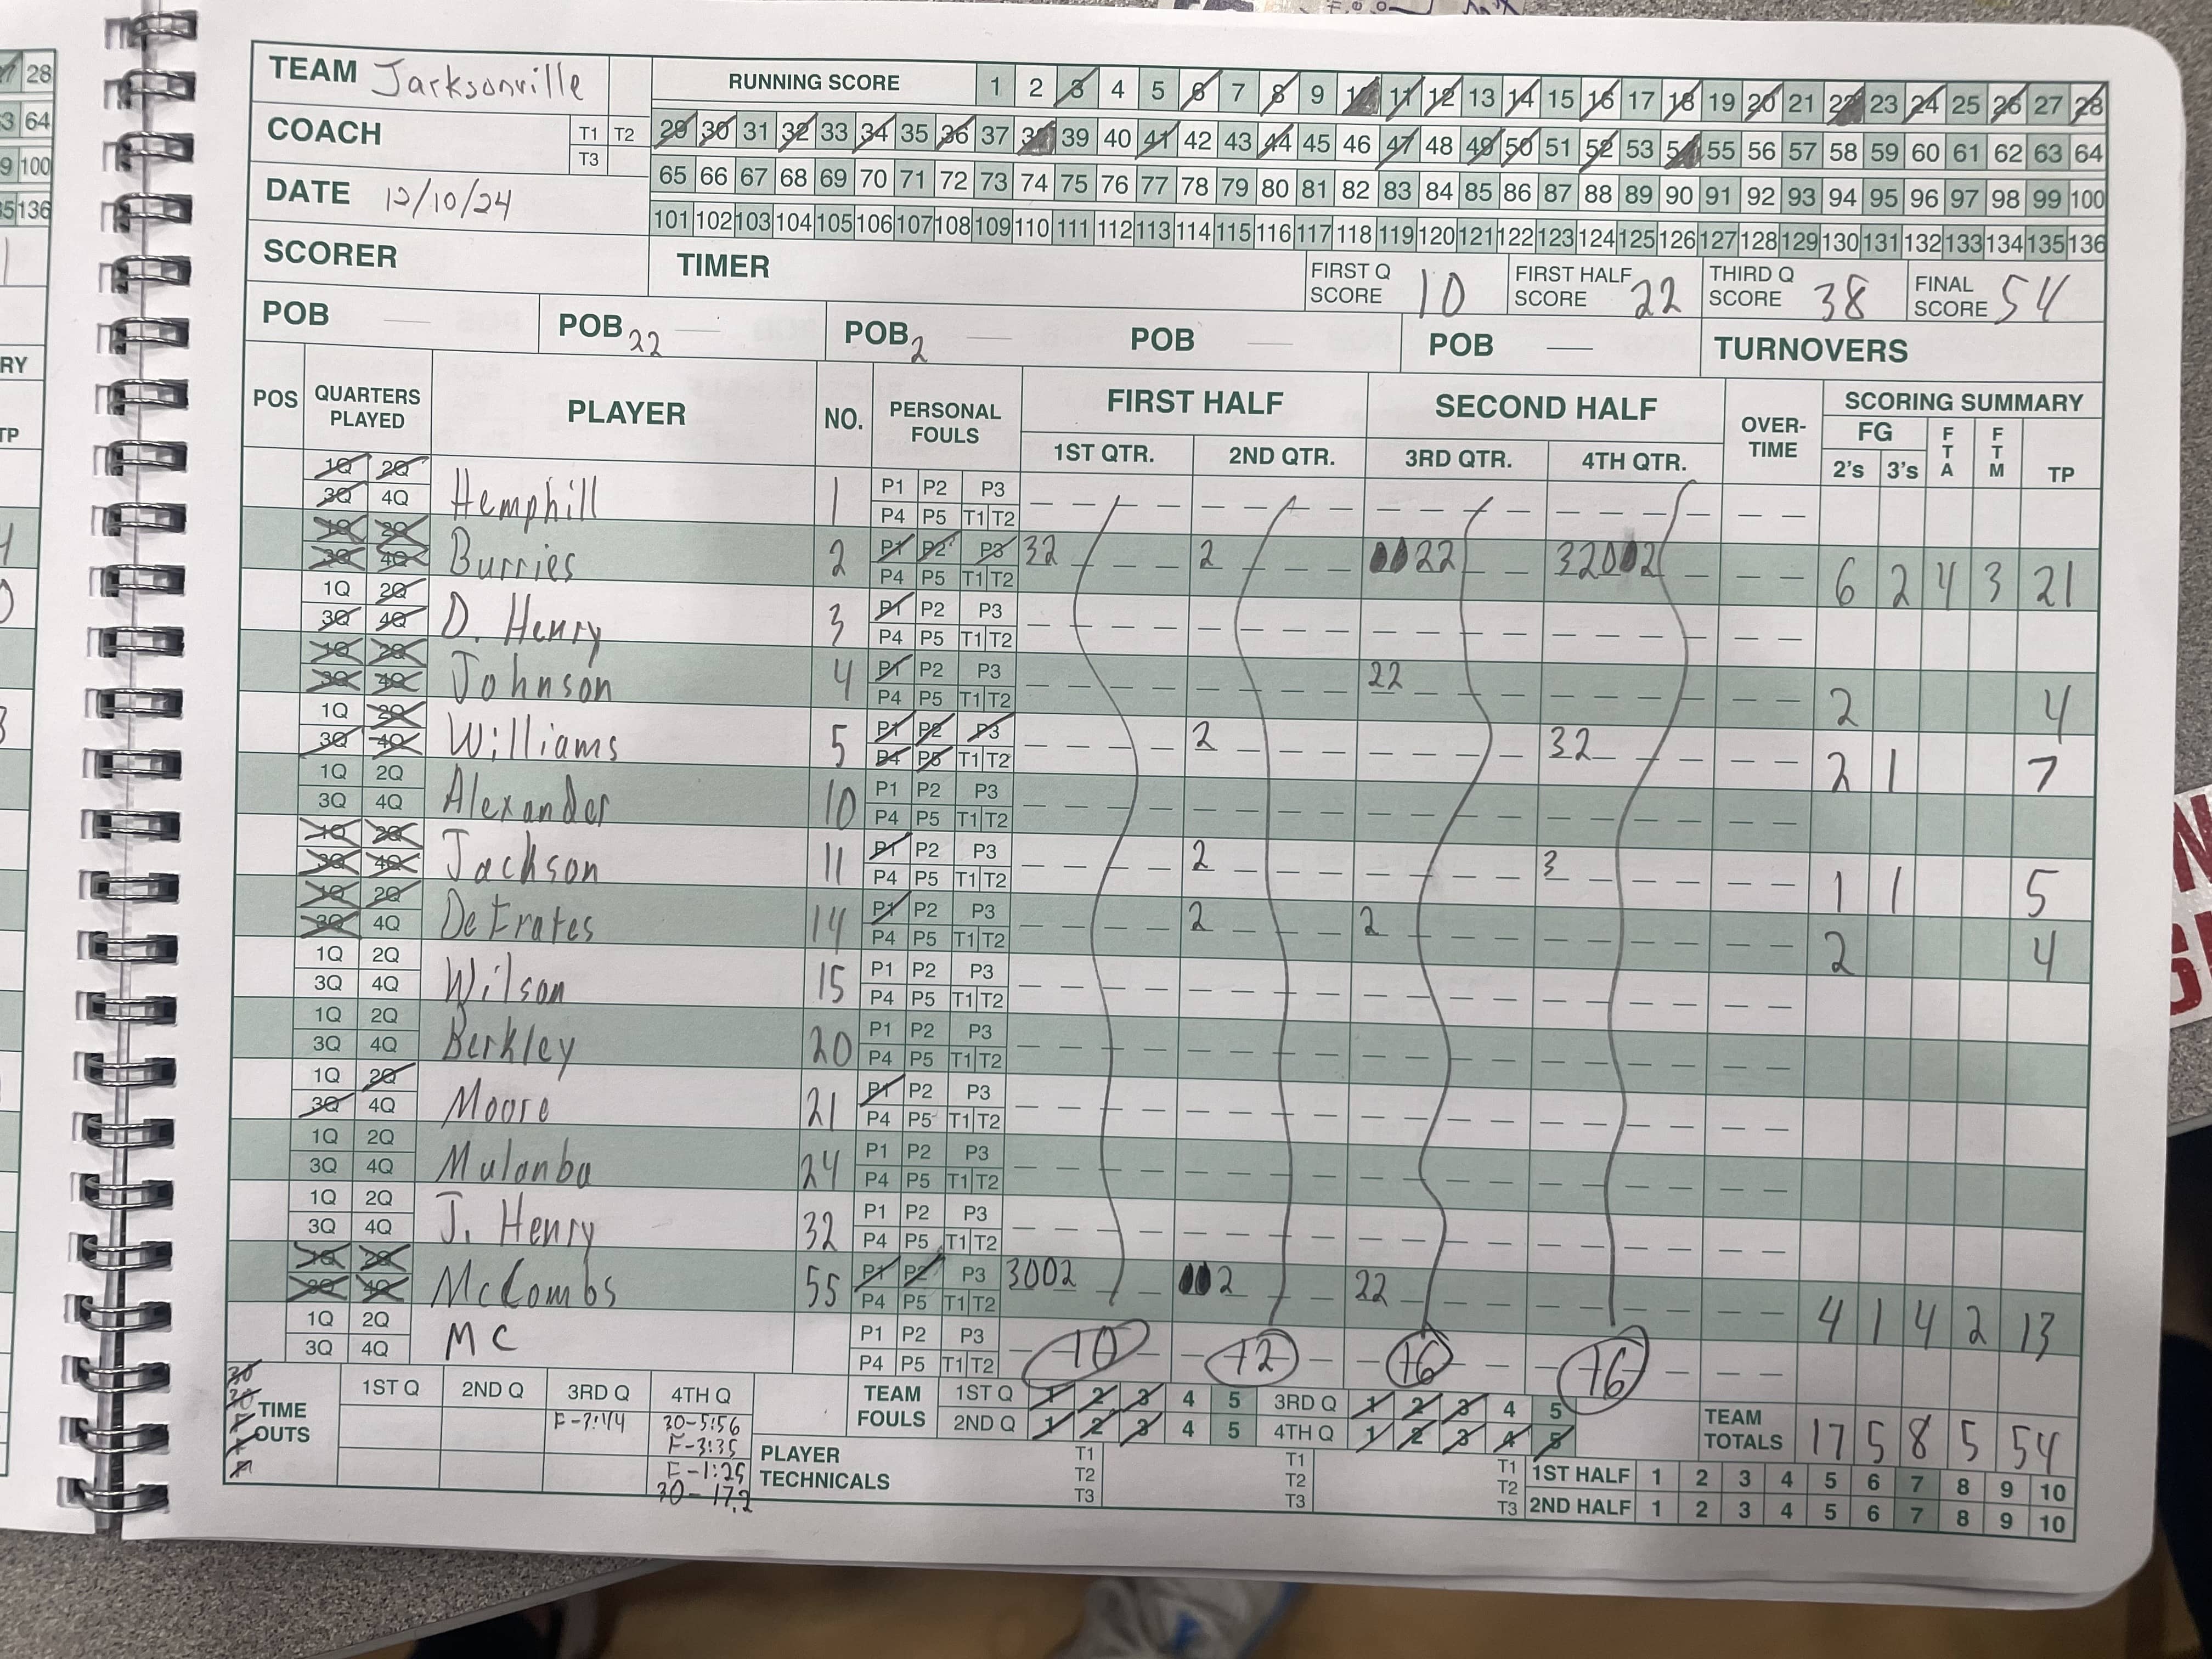 TEAM Jacksonville
RUNNING SCORE 1 2 3 4 5 6 7 8 9 10 11 12 13 14 15 16 17 18 19 20 21 22 23 24 25 26 27 28
COACH T1 T2 T3
29 30 31 32 33 34 35 36 37 38 39 40 41 42 43 44 45 46 47 48 49 50 51 52 53 54 55 56 57 58 59 60 61 62 63 64
65 66 67 68 69 70 71 72 73 74 75 76 77 78 79 80 81 82 83 84 85 86 87 88 89 90 91 92 93 94 95 96 97 98 99 100
DATE 12/10/24
101 102 103 104 105 106 107 108 109 110 111 112 113 114 115 116 117 118 119 120 121 122 123 124 125 126 127 128 129 130 131 132 133 134 135 136
SCORER TIMER FIRST Q SCORE 10 FIRST HALF SCORE 22 THIRD Q SCORE 38 FINAL SCORE 54
POB — POB 22 — POB 2 — POB — POB — TURNOVERS
POS QUARTERS PLAYED PLAYER NO. PERSONAL FOULS FIRST HALF SECOND HALF OVER-TIME SCORING SUMMARY
1ST QTR. 2ND QTR. 3RD QTR. 4TH QTR. FG 2's 3's FTA FTM TP
1Q 2Q 3Q 4Q Hemphill 1 P1 P2 P3 P4 P5 T1 T2
1Q 2Q 3Q 4Q Burries 2 P1 P2 P3 P4 P5 T1 T2 32 2 0022 320002 6 2 4 3 21
1Q 2Q 3Q 4Q D. Henry 3 P1 P2 P3 P4 P5 T1 T2
1Q 2Q 3Q 4Q Johnson 4 P1 P2 P3 P4 P5 T1 T2 22 2 4
1Q 2Q 3Q 4Q Williams 5 P1 P2 P3 P4 P5 T1 T2 2 32 2 1 7
1Q 2Q 3Q 4Q Alexander 10 P1 P2 P3 P4 P5 T1 T2
1Q 2Q 3Q 4Q Jackson 11 P1 P2 P3 P4 P5 T1 T2 2 3 1 1 5
1Q 2Q 3Q 4Q DeFrates 14 P1 P2 P3 P4 P5 T1 T2 2 2 2 4
1Q 2Q 3Q 4Q Wilson 15 P1 P2 P3 P4 P5 T1 T2
1Q 2Q 3Q 4Q Berkley 20 P1 P2 P3 P4 P5 T1 T2
1Q 2Q 3Q 4Q Moore 21 P1 P2 P3 P4 P5 T1 T2
1Q 2Q 3Q 4Q Mulanba 24 P1 P2 P3 P4 P5 T1 T2
1Q 2Q 3Q 4Q J. Henry 32 P1 P2 P3 P4 P5 T1 T2
1Q 2Q 3Q 4Q McCombs 55 P1 P2 P3 P4 P5 T1 T2 3002 002 22 4 1 4 2 13
1Q 2Q 3Q 4Q MC P1 P2 P3 P4 P5 T1 T2 10 12 16 16
TIME OUTS 1ST Q 2ND Q 3RD Q 4TH Q TEAM FOULS 1ST Q 1 2 3 4 5 3RD Q 1 2 3 4 5
2ND Q 1 2 3 4 5 4TH Q 1 2 3 4 5 TEAM TOTALS 17 5 8 5 54
30 30
F-3:35
F-1:25
30-17.2
30-5:56
PLAYER TECHNICALS T1 T2 T3 T1 T2 T3 T1 T2 T3
1ST HALF 1 2 3 4 5 6 7 8 9 10
2ND HALF 1 2 3 4 5 6 7 8 9 10